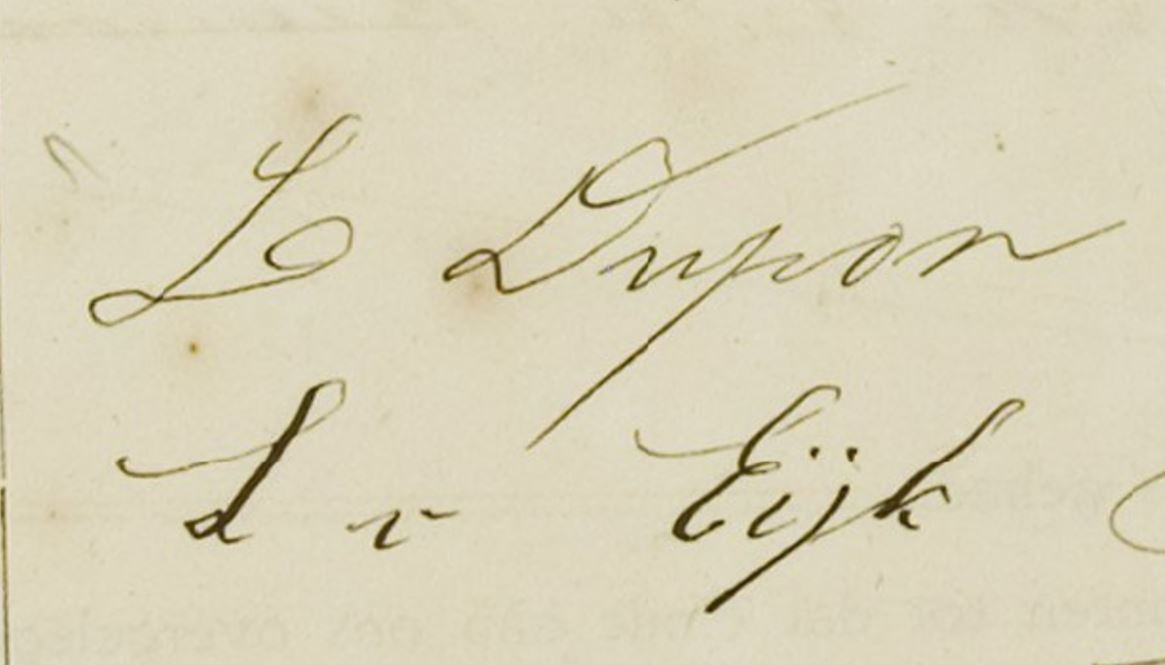 L Dupon
L v Eijk